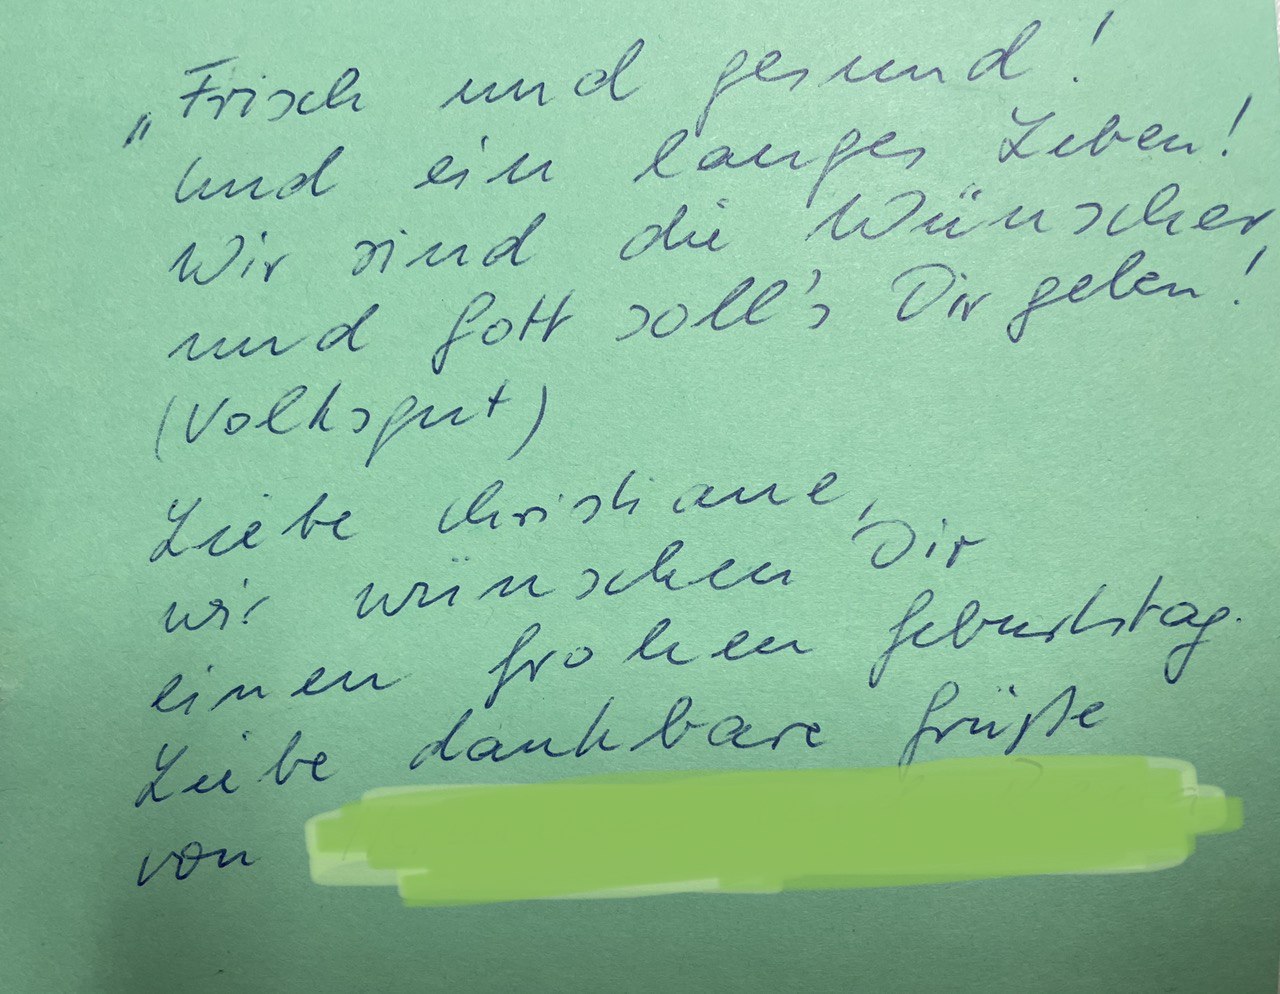 „Frisch und gesund!
Und ein langes Leben!
Wir sind die Wünscher
und Gott soll's Dir geben!
(Volksgut)
Liebe Christiane,
wir wünschen Dir
einen frohen Geburtstag.
Liebe dankbare Grüße
von